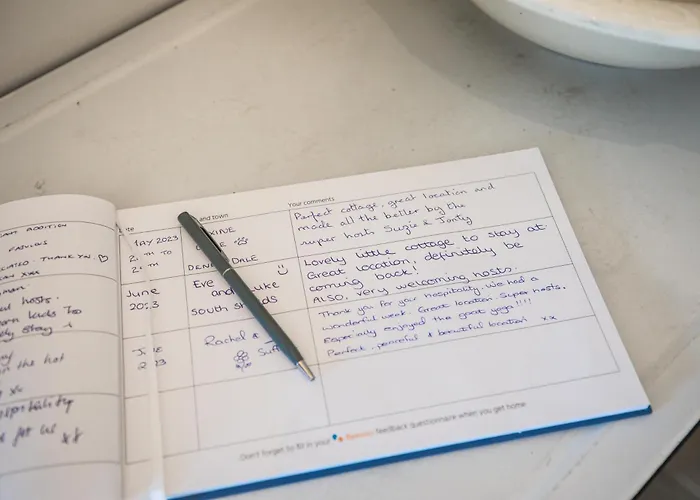 ADDITION
FABULOUS
THANK YOU ♡
xxx
hosts.
kids Too
stay
in the hot
xx
Hospitality
for us xx
and town
Your comments
MAY 2023
TO
DALE
Perfect cottage, great location and
made all the better by the
super hosts Suzie & Jonty
June
2023
Eve
and Luke
south
Lovely little cottage to stay at
Great location, definitely be
coming back!
Also, very welcoming hosts.
Rachel &
Thank you for your hospitality. We had a
wonderful week. Great location. Super hosts.
Especially enjoyed the goat yoga!!!!
Perfect, peaceful & beautiful location! xx
Don't forget to fill in your feedback questionnaire when you get home